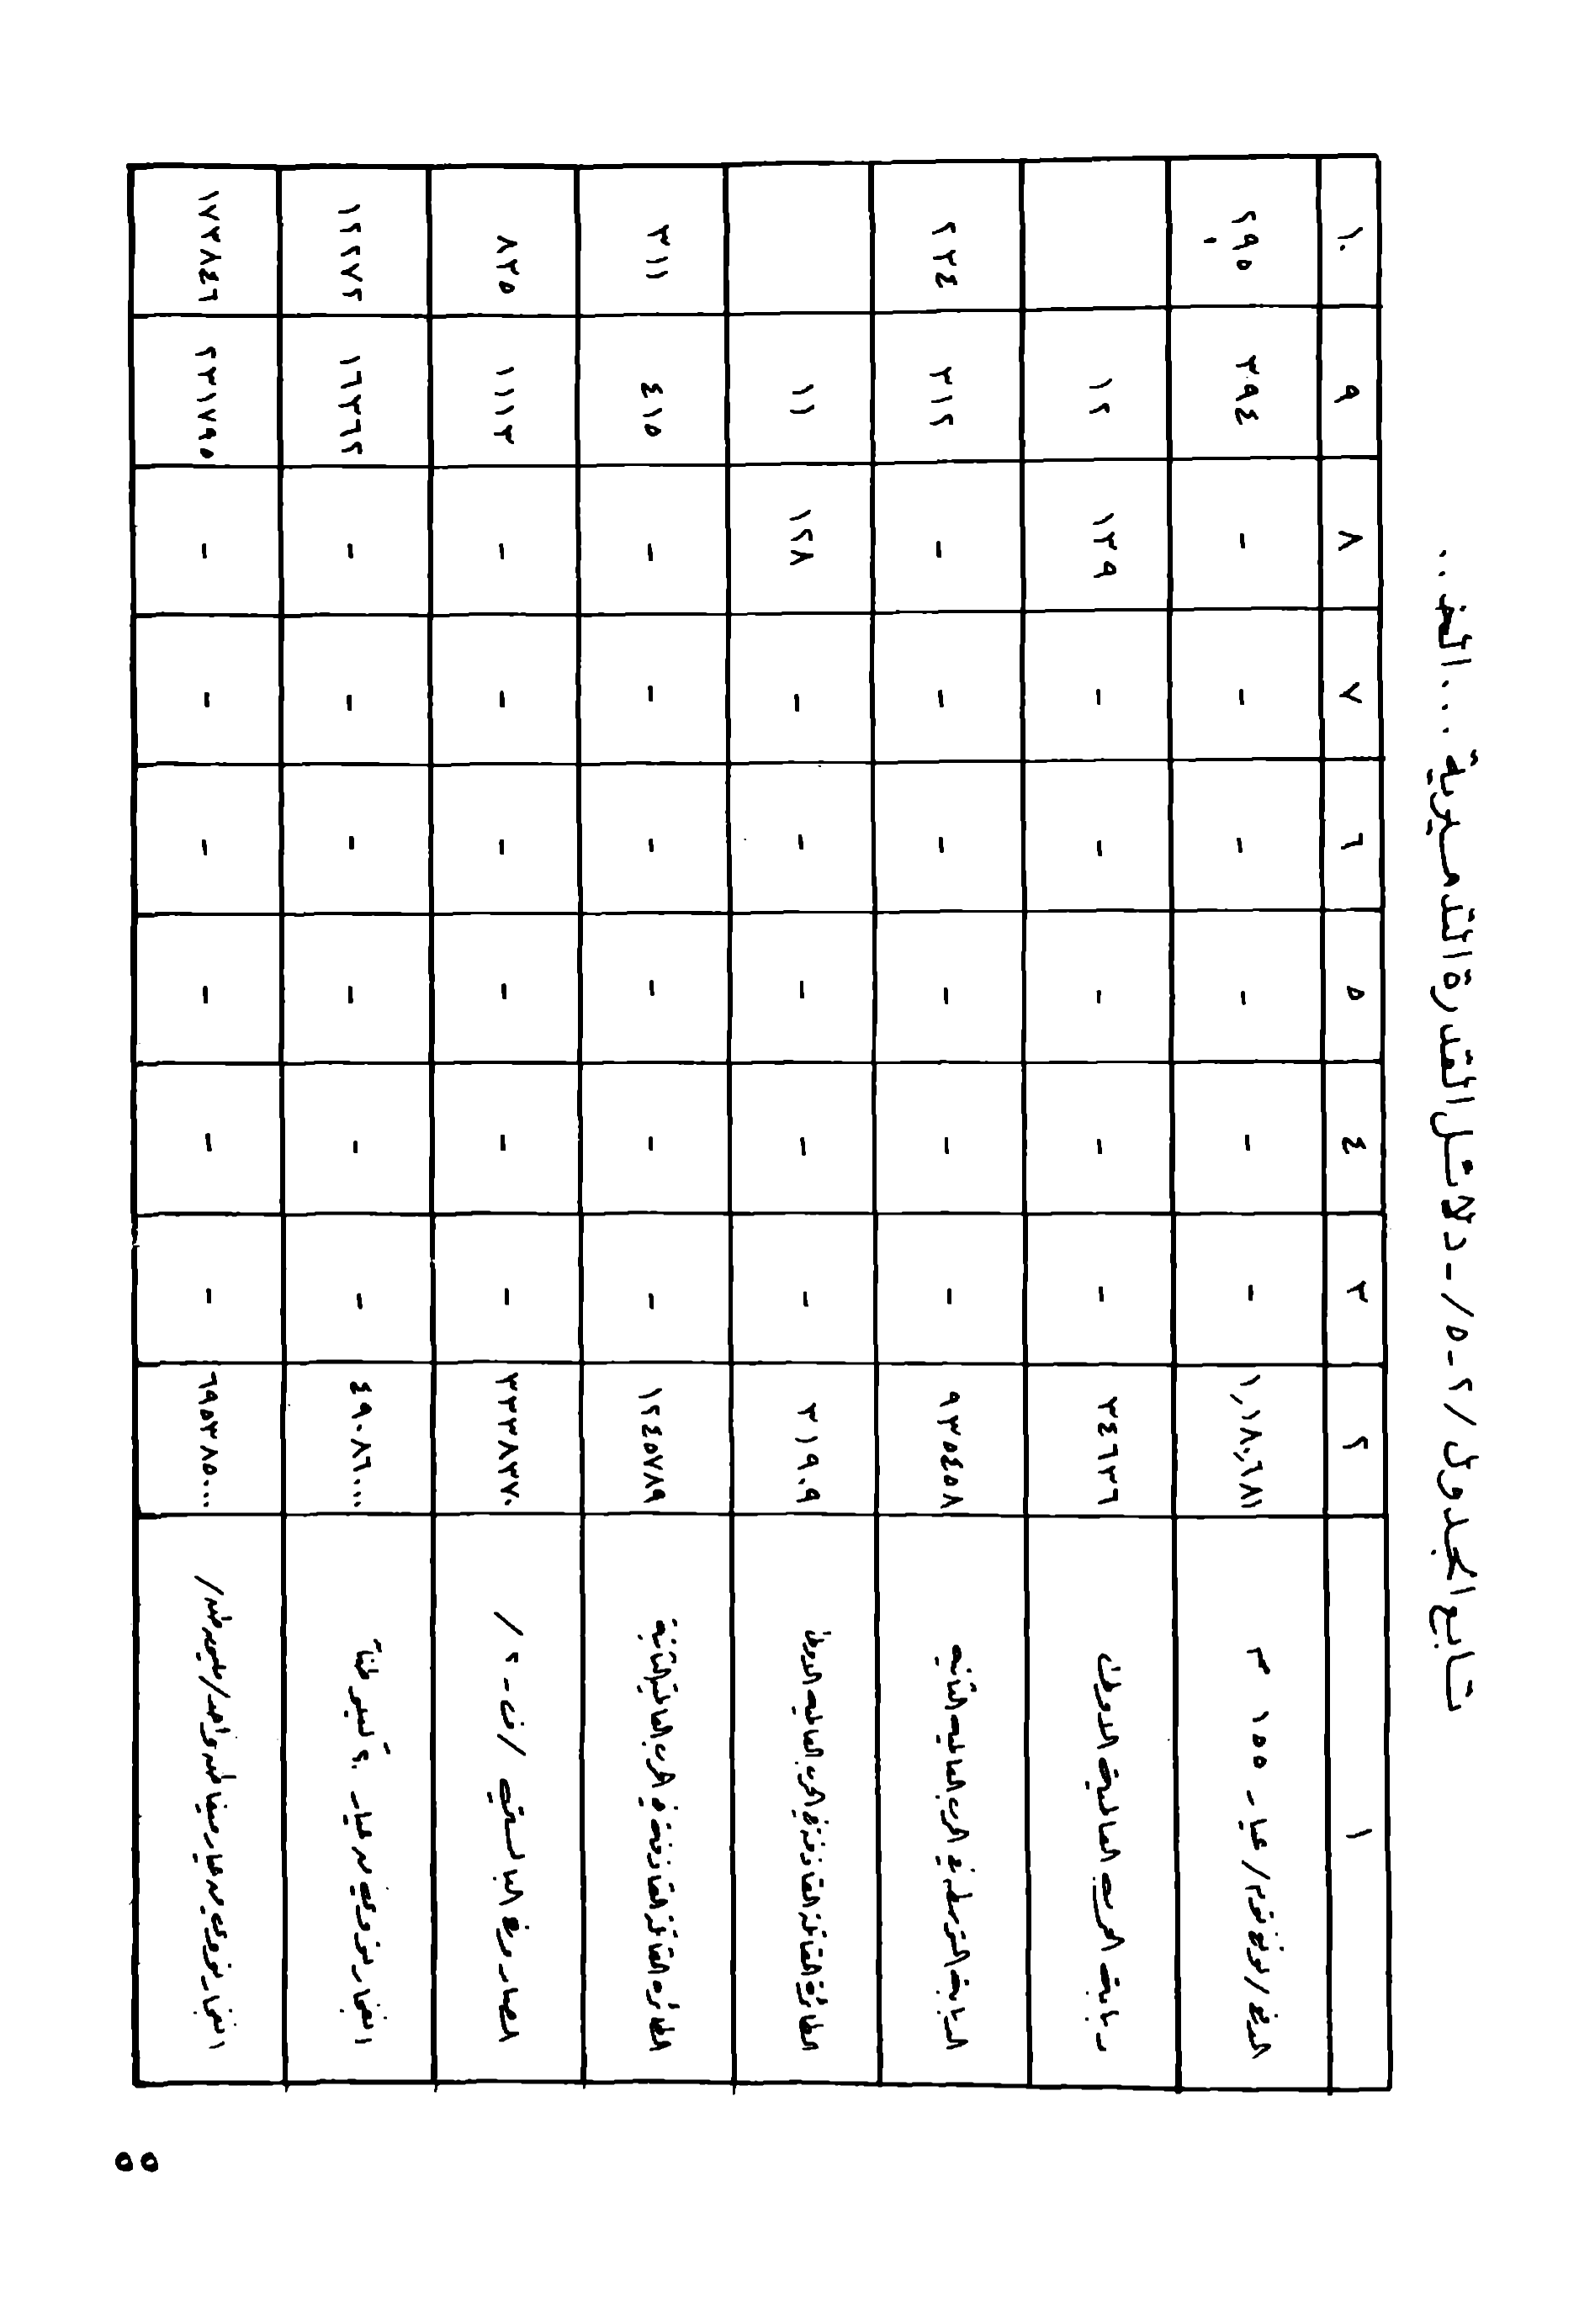 تابع الجدول /٢-٥/ - دلائل القدرة التدميرية ... الخ ..
١ ٢ ٣ ٤ ٥ ٦ ٧ ٨ ٩ ١٠
المدفع /لونغ توم/ عيار ١٥٥ م ١,١٨٠,٦٨١ - - - - - - ٣٩٤ ٢٩٥
دبابة الحرب العالمية الاولى ٣٤٦٣٦ - - - - - ١٣٩ ١٢
الدبابة المتوسطة في الحرب العالمية الثانية ٩٣٥٤٥٨ - - - - - - ٣١٢ ٢٣٤
الطائرة المقاتلة القاذفة في الحرب العالمية الاولى ٣١٩٠٩ - - - - - ١٢٨ ١١
الطائرة المقاتلة القاذفة في الحرب العالمية الثانية ١٢٤٥٧٨٩ - - - - - - ٤١٥ ٣١١
الصاروخ البالستي /ف-٢/ ٣٣٣٨٣٧٠ - - - - - - ١١١٣ ٨٣٥
انفجار نووي من عيار ٢٠ كيلو طناً ٤٩٠٨٦٠٠٠ - - - - - - ١٦٣٦٢ ١٢٢٧٢
انفجار نووي من عيار ميغا طن واحد /مليون طن/ ٦٩٥٣٨٥٠٠٠ - - - - - - ٢٣١٧٩٥ ١٧٣٨٤٦
٥٥